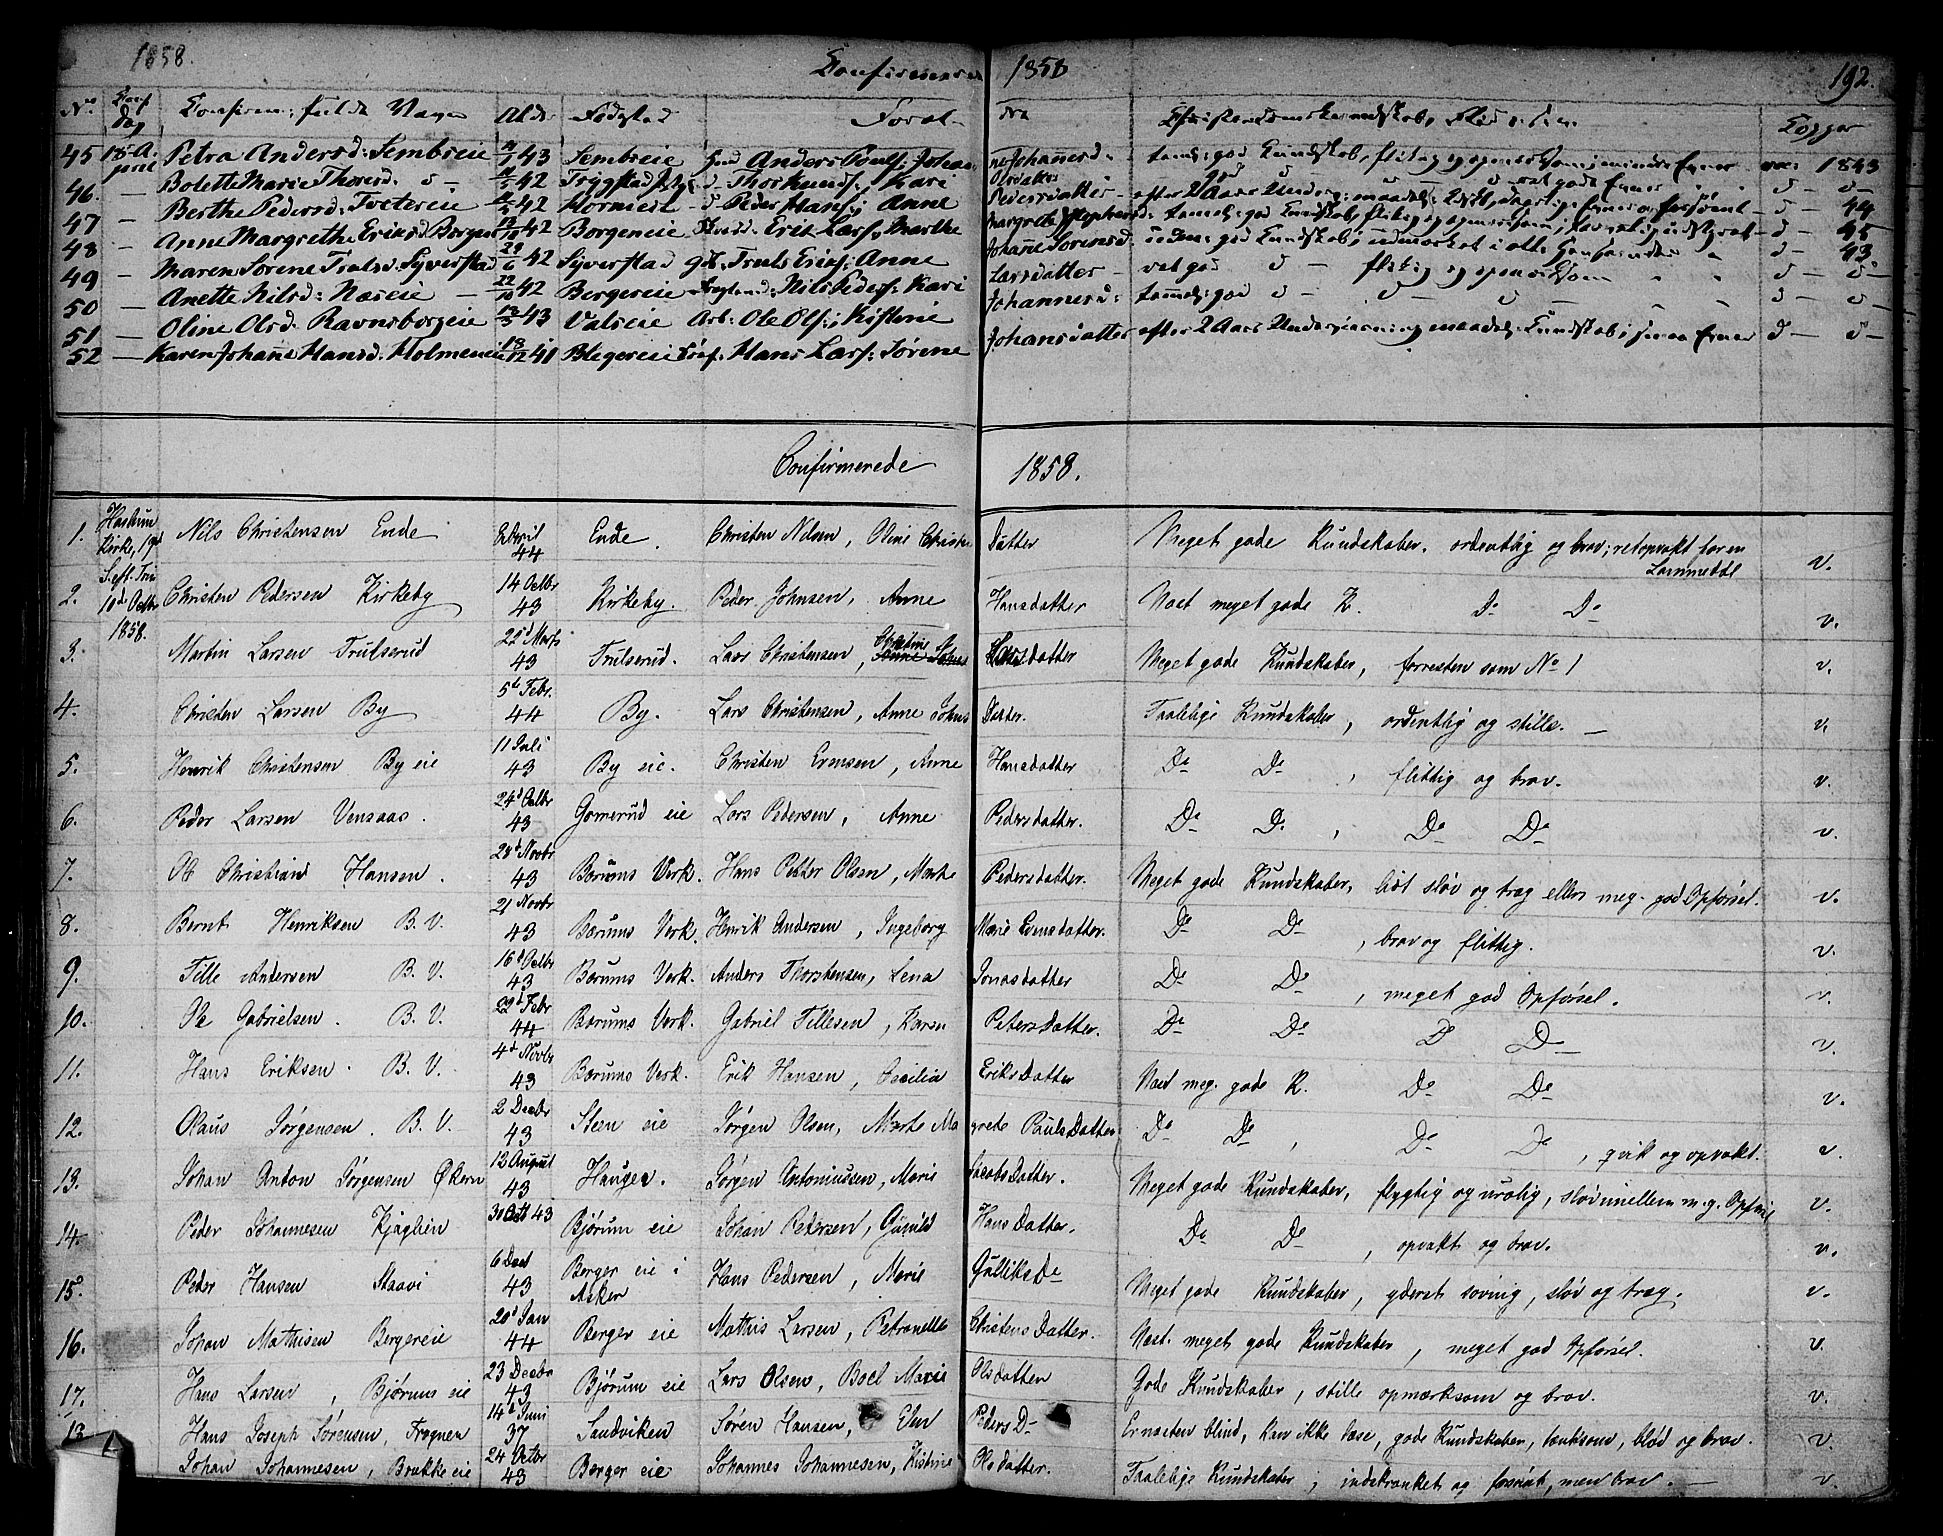 1858. Confirmerede 1858 192.
No. Conf. Dag Confirm: fulde Navn Alder Fødested Foræl- dre Christendomskundskab, Flid Copper
45 18 A. Petra Andersd: Sembseie 43 Sembseie Gmd Anders Pouls: Johan- ne Johannesd: tamel: god Kundskab, flittig og opmærksom, vac: 1843
46. — Bolette Marie Thoresd. 42 Trygstad Thor Knuds: Kari Olsdatter
47 — Berthe Pedersd: Tvetereie 42 Peder Hans: Anne Pedersdatter - efter 2 Aars Underv: 44
48 — Anne Margrethe Eriksd Borgen 42 Borgeneie Erik Lars: Marthe Margrethe 45
49 — Maren Sørene Trulsd Syverstad 29/6 42 Syverstad Gdb: Truls Erics: Anne Johanne Sørensd. 43
50 — Anette Nilsd: Næseie — 22/10 42 Bergereie Nils Peders: Kari Larsdatter - vel god — flittig og opmærksom
51 — Oline Olsd. Ravnsborgeie 43 Valseie Arb: Ole Ols: Kistine Johannesd: tamel: god
52 — Karen Johanne Hansd: Holmeneie 18/12 41 Blegereie Hans Lars: Sørene Johansdatter efter 2 Aars Underviisning maadel: Kundskab, svage Evner
Confirmerede 1858.
1. Haslum Kirke, 19d Nils Christensen Ende April 44 Ende. Christen Nilsen, Oline Christens Datter Meget gode Kundskaber. ordentlig og brav; v.
2. S. eft. Trin 10de Octbr Christen Pedersen Kirkeby 14 Octbr 43 Kirkeby. Peder Johnsen, Anne Hansdatter Næst meget gode K. Do Do v.
3. 1858. Martin Larsen Trulserud 22d Marts 43 Trulserud. Lars Christensen, Christine Larsdatter Meget gode Kundskaber, forresten som No 1 v.
4. Christen Larsen By 5d Febr. 44 By. Lars Christensen, Anne Johns Datter. Taalelige Kundskaber, ordentlig og stille. — v.
5. Henrik Christensen By eie 11 Juli 43 By eie. Christen Evensen, Anne Hansdatter Do Do, flittig og brav. v.
6. Peder Larsen Vensaas. 24d Octbr 43 Gomerud eie Lars Pedersen, Anne Pedersdatter. Do Do, Do Do v.
7. Ole Christian Hansen. 28d Novbr 43 Bærums Verk. Hans Petter Olsen, Marte Pedersdatter. Meget gode Kundskaber, lidt sløv og træg ellers meg. god Opførsel. v.
8. Bernt Henriksen B. V. 21 Novbr 43 Bærums Verk. Henrik Andersen, Ingeborg Marie Evensdatter. Do Do, brav og flittig. v.
9. Tille Andersen B. V. 16d Octbr 43 Bærums Verk. Anders Thorstensen, Lena Jonasdatter Do Do, meget god Opførsel. v.
10. Ole Gabrielsen. B. V. 22d Febr 44 Bærums Verk. Gabriel Tillesen, Karen Petersdatter. Do Do D Do v.
11. Hans Eriksen. B. V. 4d Novbr 43 Bærums Verk. Erik Hansen, Cecilia Eriksdatter Næst meg. gode K. Do Do v.
12. Olaus Jørgensen. B. V. 2 Decbr 43 Steen eie Jørgen Olsen, Marte Ma grete Paulsdatter Do Do, Do Do, qvik og opvakt. v.
13. Johan Anton Jørgensen Økern 12 August 43 Haugen. Jørgen Antoniussen, Marie Jacobsdatter. Meget gode Kundskaber, flygtig og urolig, sløv imellem m. g. Opførsel v.
14. Peder Johannesen Kjaglien 30 Oct 43 Bjørum eie Johan Pedersen, Gunild Hansdatter. Do Do, opvakt og brav. v.
15. Peder Hansen Staavi 6 Dec 43 Berger eie i Asker Hans Pedersen, Marie Gulliks Do Meget gode Kundskaber, yderst søvnig, sløv og træg. v.
16. Johan Mathisen Bergereie 20d Jan 44 Berger eie Mathis Larsen, Petronelle Christensdatter. Næst. meget gode Kundskaber, meget god Opførsel. v.
17. Hans Larsen, Bjørums eie 23 Decbr 43 Bjørum eie Lars Olsen, Boel Marie Olsdatter Gode Kundskaber, stille opmærksom og brav. v.
18 Hans Joseph Sørensen, Frognen 14d Juni 37 Sandviken Søren Hansen, Elen Peders D- Er næsten blind, kan ikke læse, gode Kundskaber, tænksom, blød og brav. v.
Johan Johannesen, Brække eie 24 Octbr 43 Berger eie Johannes Johannesen, Kistine Olsdatter. Taalelige Kundskaber; indskrænket og forsømt, men brav. — v.